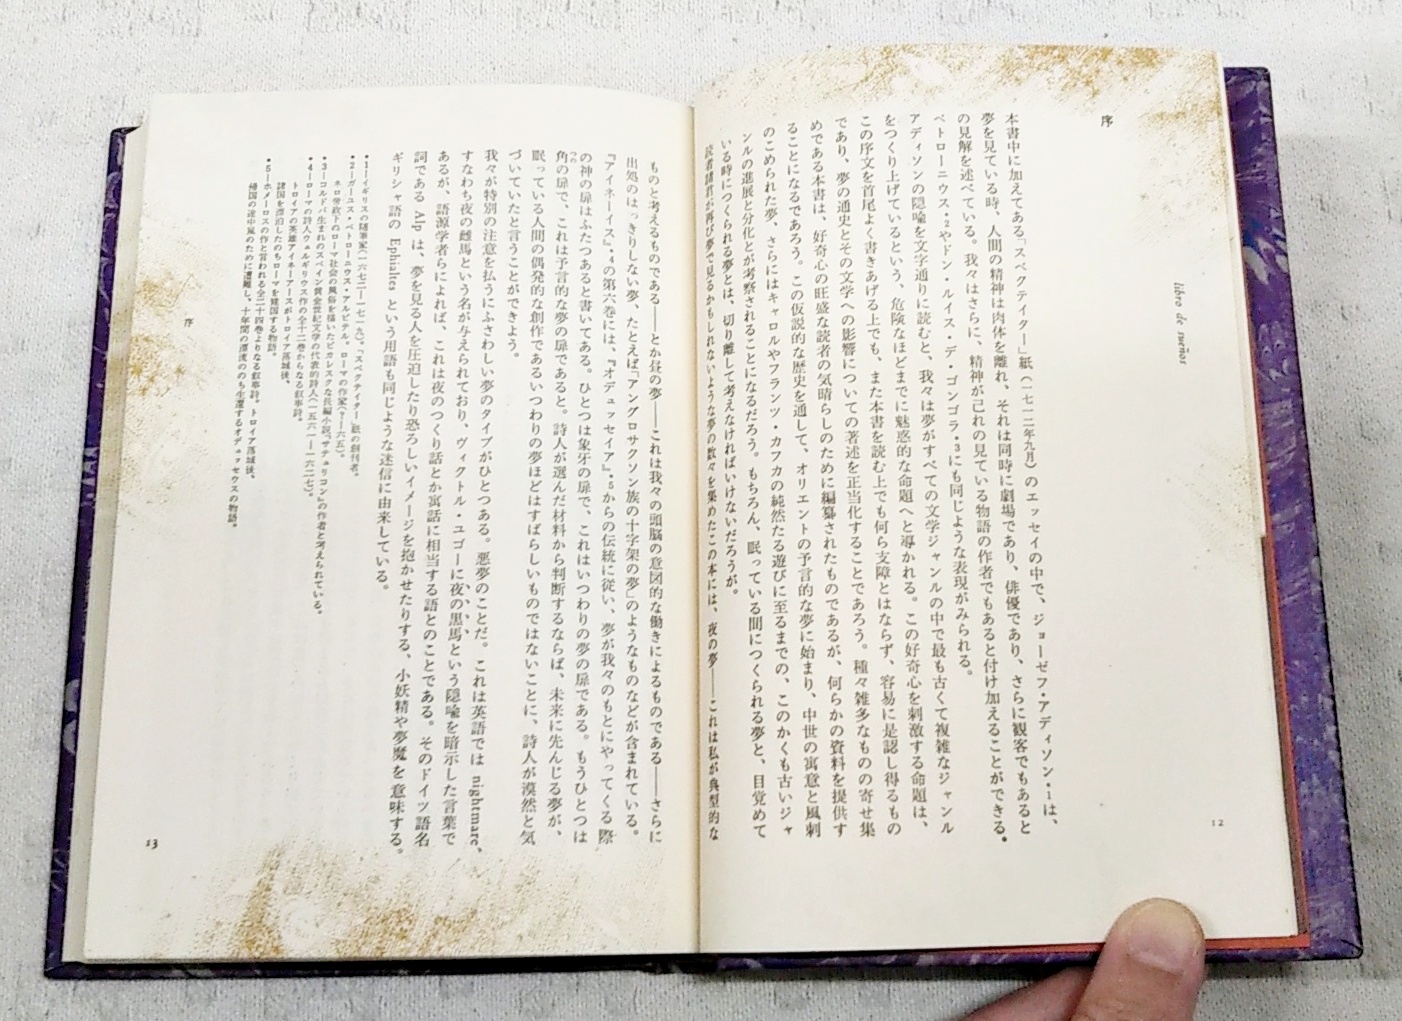 libro de sueños
序
本書中に加えてある「スペクテイター」紙(一七一二年九月)のエッセイの中で、ジョーゼフ・アディソン・1は、
夢を見ている時、人間の精神は肉体を離れ、それは同時に劇場であり、俳優であり、さらに観客でもあると
の見解を述べている。我々はさらに、精神が己れの見ている物語の作者でもあると付け加えることができる。
ペトローニウス・2やドン・ルイス・デ・ゴンゴラ・3にも同じような表現がみられる。
アディソンの隠喩を文字通りに読むと、我々は夢がすべての文学ジャンルの中で最も古くて複雑なジャンル
をつくり上げているという、危険なほどまでに魅惑的な命題へと導かれる。この好奇心を刺激する命題は、
この序文を首尾よく書きあげる上でも、また本書を読む上でも何ら支障とはならず、容易に是認し得るもの
であり、夢の通史とその文学への影響についての著述を正当化することであろう。種々雑多なものの寄せ集
めである本書は、好奇心の旺盛な読者の気晴らしのために編纂されたものであるが、何らかの資料を提供す
ることになるであろう。この仮説的な歴史を通して、オリエントの予言的な夢に始まり、中世の寓意と風刺
のこめられた夢、さらにはキャロルやフランツ・カフカの純然たる遊びに至るまでの、このかくも古いジャ
ンルの進展と分化とが考察されることになるだろう。もちろん、眠っている間につくられる夢と、目覚めて
いる時につくられる夢とは、切り離して考えなければいけないだろうが。
読者諸君が再び夢で見るかもしれないような夢の数々を集めたこの本には、夜の夢――これは私が典型的な
12
ものと考えるものである――とか昼の夢――これは我々の頭脳の意図的な働きによるものである――さらに
出処のはっきりしない夢、たとえば「アングロサクソン族の十字架の夢」のようなものなどが含まれている。
『アイネーイス』・4の第六巻には、『オデュッセイア』・5からの伝統に従い、夢が我々のもとにやってくる際
の神の扉はふたつあると書いてある。ひとつは象牙の扉で、これはいつわりの夢の扉である。もうひとつは
角の扉で、これは予言的な夢の扉であると。詩人が選んだ材料から判断するならば、未来に先んじる夢が、
眠っている人間の偶発的な創作であるいつわりの夢ほどはすばらしいものではないことに、詩人が漠然と気
づいていたと言うことができよう。
我々が特別の注意を払うにふさわしい夢のタイプがひとつある。悪夢のことだ。これは英語では nightmare、
すなわち夜の雌馬という名が与えられており、ヴィクトル・ユゴーに夜の黒馬という隠喩を暗示した言葉で
あるが、語源学者らによれば、これは夜のつくり話とか寓話に相当する語とのことである。そのドイツ語名
詞である Alp は、夢を見る人を圧迫したり恐ろしいイメージを抱かせたりする、小妖精や夢魔を意味する。
ギリシャ語の Ephialtes という用語も同じような迷信に由来している。
・1―イギリスの随筆家(一六七二―一七一九)。「スペクテイター」紙の創刊者。
・2―ガーユス・ペトローニウス・アルビテル。ローマの作家(?―六五)。
ネロ帝政下のローマ社会の風俗を描いたピカレスクな長編小説『サテュリコン』の作者と考えられている。
・3―コルドバ生まれのスペイン黄金世紀文学の代表的詩人(一五六一―一六二七)。
・4―ローマの詩人ウェルギリウス作の全十二巻からなる叙事詩。
トロイアの英雄アイネーアースがトロイア落城後、
諸国を漂泊したのちローマを建国する物語。
・5―ホメーロスの作と言われる全二十四巻よりなる叙事詩。トロイア落城後、
帰国の途中嵐のために遭難し、十年間の漂流ののち生還するオデュッセウスの物語。
序
13